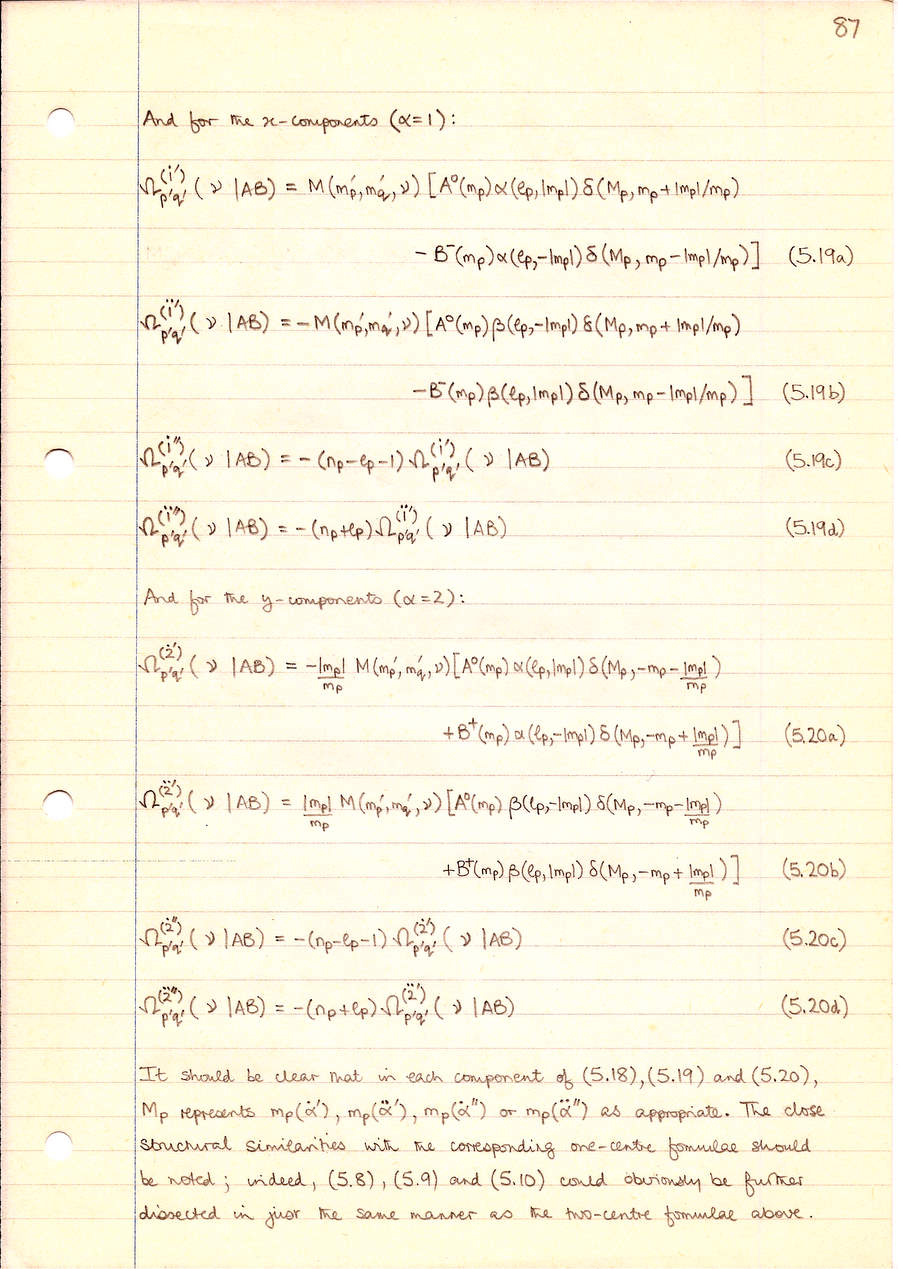 87
And for the x-components (α=1):
Ω_{p′q′}^{(1̇′)}(ν|AB) = M(m_p′,m_q′,ν)[A⁰(m_p)α(ℓ_p,|m_p|)δ(M_p,m_p+|m_p|/m_p)
−B⁻(m_p)α(ℓ_p,−|m_p|)δ(M_p,m_p−|m_p|/m_p)] (5.19a)
Ω_{p′q′}^{(1̈′)}(ν|AB) = −M(m_p′,m_q′,ν)[A⁰(m_p)β(ℓ_p,−|m_p|)δ(M_p,m_p+|m_p|/m_p)
−B⁻(m_p)β(ℓ_p,|m_p|)δ(M_p,m_p−|m_p|/m_p)] (5.19b)
Ω_{p′q′}^{(1̇″)}(ν|AB) = −(n_p−ℓ_p−1)Ω_{p′q′}^{(1̇′)}(ν|AB) (5.19c)
Ω_{p′q′}^{(1̈″)}(ν|AB) = −(n_p+ℓ_p)Ω_{p′q′}^{(1̈′)}(ν|AB) (5.19d)
And for the y-components (α=2):
Ω_{p′q′}^{(2̇′)}(ν|AB) = −|m_p|/m_p M(m_p′,m_q′,ν)[A⁰(m_p)α(ℓ_p,|m_p|)δ(M_p,−m_p−|m_p|/m_p)
+B⁺(m_p)α(ℓ_p,−|m_p|)δ(M_p,−m_p+|m_p|/m_p)] (5.20a)
Ω_{p′q′}^{(2̈′)}(ν|AB) = |m_p|/m_p M(m_p′,m_q′,ν)[A⁰(m_p)β(ℓ_p,−|m_p|)δ(M_p,−m_p−|m_p|/m_p)
+B⁺(m_p)β(ℓ_p,|m_p|)δ(M_p,−m_p+|m_p|/m_p)] (5.20b)
Ω_{p′q′}^{(2̇″)}(ν|AB) = −(n_p−ℓ_p−1)Ω_{p′q′}^{(2̇′)}(ν|AB) (5.20c)
Ω_{p′q′}^{(2̈″)}(ν|AB) = −(n_p+ℓ_p)Ω_{p′q′}^{(2̈′)}(ν|AB) (5.20d)
It should be clear that in each component of (5.18),(5.19) and (5.20),
M_p represents m_p(α̇′), m_p(α̈′), m_p(α̇″) or m_p(α̈″) as appropriate. The close
structural similarities with the corresponding one-centre formulae should
be noted; indeed, (5.8), (5.9) and (5.10) could obviously be further
dissected in just the same manner as the two-centre formulae above.